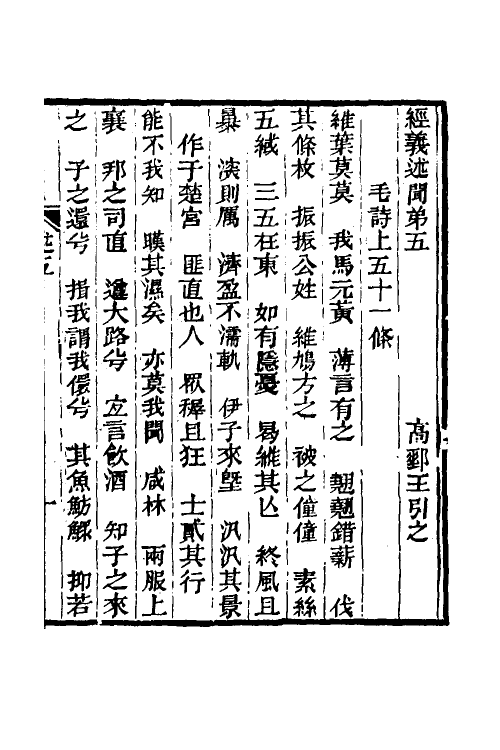 經義述聞弟五　高郵王引之
毛詩上五十一條
維葉莫莫　我馬元黃　薄言有之　翹翹錯薪　伐
其條枚　振振公姓　維鳩方之　被之僮僮　素絲
五緎　三五在東　如有隱憂　曷維其亡　終風且
暴　深則厲　濟盈不濡軌　伊予來墍　汎汎其景
作于楚宮　匪直也人　眾穉且狂　士貳其行
能不我知　暵其濕矣　亦莫我聞　咸林　兩服上
襄　邦之司直　遵大路兮　宜言飲酒　知子之來
之　子之還兮　揖我謂我儇兮　其魚魴鰥　抑若